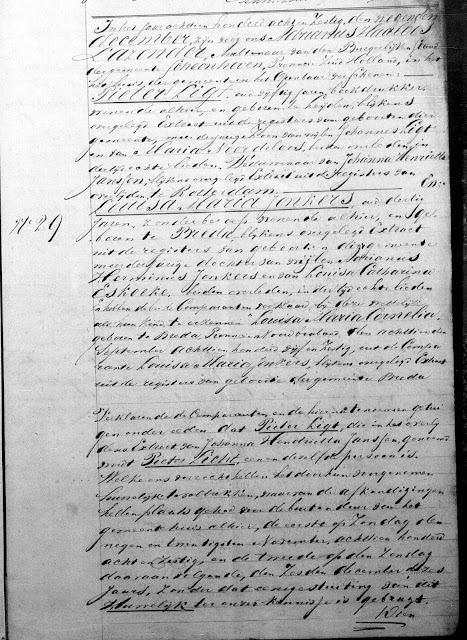 In het jaar achttien honderd acht en zestig, den negenden
december, zijn voor ons Adrianus
Ambtenaar van den Burgerlijken stand
der gemeente Provincie Zuid Holland, in het
huis der gemeente in het Openbaar verschenen:
Pieter Ligt, oud vijftig jaren, boekdrukker
wonende alhier, en geboren te Leyden, blijkens
overgelegd Extract uit de registers van geboorten dier
gemeente, meerderjarige zoon van wijlen Johannes Ligt
en van Maria Noordeloos, beiden overleden, in
der tijd echte lieden. Weduwnaar van Johanna Henriette
Janssen, blijkens overgelegd Extract uit de Registers van
overlijden te Rotterdam. En:
Louisa Maria Jonkers, oud dertig
No 29
jaren, zonder beroep, wonende alhier, en Ge-
boren te Breda, blijkens overgelegd Extract
uit de registers van geboorten dier gemeente
meerderjarige dochter van wijlen Adrianus
Herminus Jonkers en van Louisa Catharina
beiden overleden, in der tijd echte lieden
hebbende de Comparanten verklaard, bij deze wettelijk
als hun kind te erkennen Louisa Maria Cornelia,
geboren te Breda, Provincie Noordbraband den achttienden
September achttien honderd vijf en zestig, uit de Compa-
rante Louisa Maria Jonkers, blijkens overgelegd Extract
uit de registers van geboorte der gemeente Breda
Verklarende de Comparanten en de hierna te noemen getui-
gen onder eede dat Pieter Ligt, die in het overlij-
dens Extract van Johanna Hendrietta Janssen genoemd
wordt Pieter Licht, een en dezelfde persoon is.
Welke ons verzocht hebben het door hun voorgenomen
huwelijk te voltrekken, waarvan de afkondigingen
hebben plaats gehad voor de buiten deur van het
gemeente huis alhier, de eerste op Zondag den
negen en twintigsten November, achttien honderd
acht en zestig, en de tweede op den Zondag
daaraanvolgende, den zesden december dezes
jaars, zonder dat eenige stuiting van dit
Huwelijk ter onzer kennisse is gebragt.